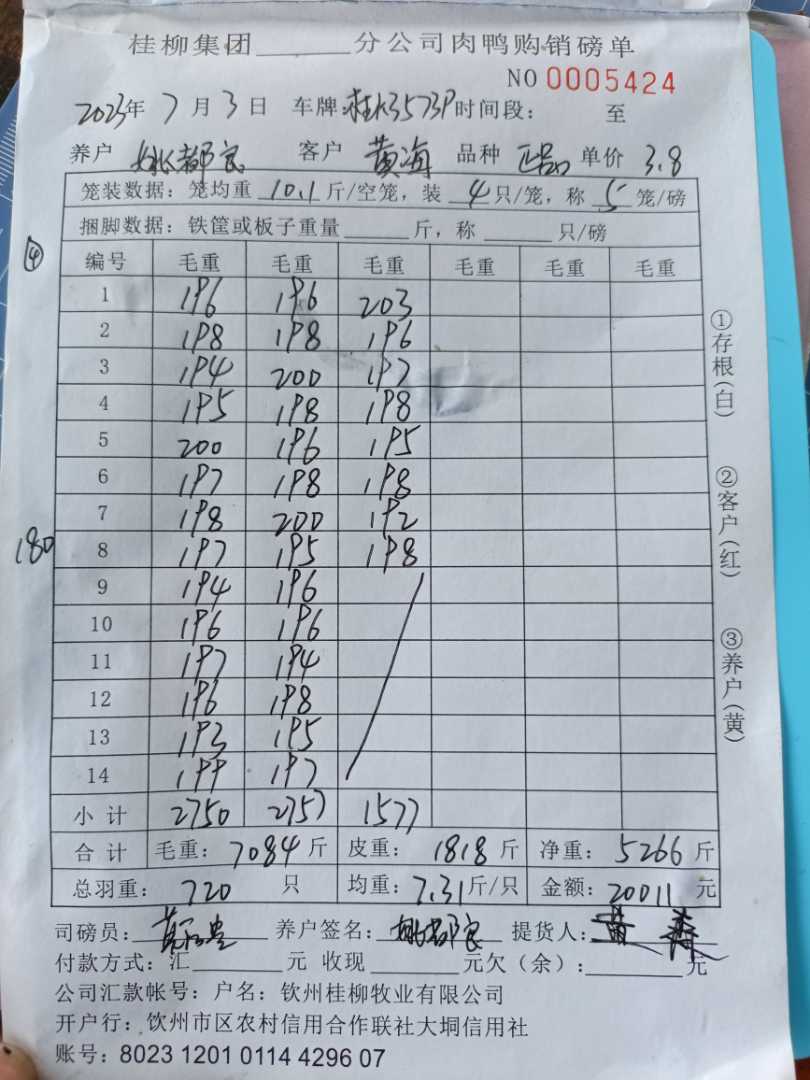 桂柳集团______分公司肉鸭购销磅单
NO 0005424
2023年 7 月 3 日 车牌:桂K3573P 时间段: 至
养户 姚都良 客户 黄海 品种 正品 单价 3.8
笼装数据: 笼均重 10.1 斤/空笼, 装 4 只/笼, 称 5 笼/磅
捆脚数据: 铁筐或板子重量______斤, 称______只/磅
④
编号 毛重 毛重 毛重 毛重 毛重 毛重
1 196 196 203
2 198 198 196
3 194 200 197
4 195 198 198
5 200 196 195
6 197 198 198
7 198 200 192
180
8 197 195 198
9 194 196
10 196 196
11 197 194
12 196 198
13 193 195
14 199 197
小计 2750 2757 1577
合计 毛重: 7084 斤 皮重: 1818 斤 净重: 5266 斤
总羽重: 720 只 均重: 7.31 斤/只 金额: 20011 元
司磅员: 养户签名: 姚都良 提货人:
付款方式: 汇______元 收现______元欠(余):______元
公司汇款帐号: 户名: 钦州桂柳牧业有限公司
开户行: 钦州市区农村信用合作联社大垌信用社
账号: 8023 1201 0114 4296 07
①存根(白)
②客户(红)
③养户(黄)